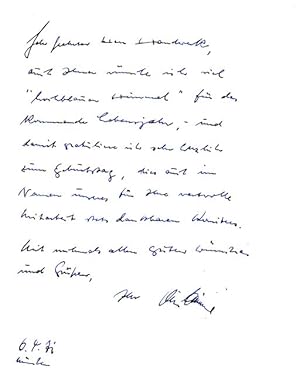 Sehr geehrter Herr
auch Ihnen wünsche ich viel
" " für das
kommende Lebensjahr, - und
damit gratuliere ich sehr herzlich
zum Geburtstag, dies auch im
Namen unseres für Ihre wertvolle
Mitarbeit stets dankbaren Kreises.
Mit nochmals allen guten Wünschen
und Grüßen,
Ihr
6. 4.